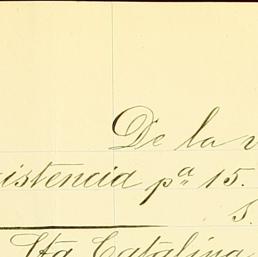 De la v
istencia pª 15.
s.
Sta Catalina